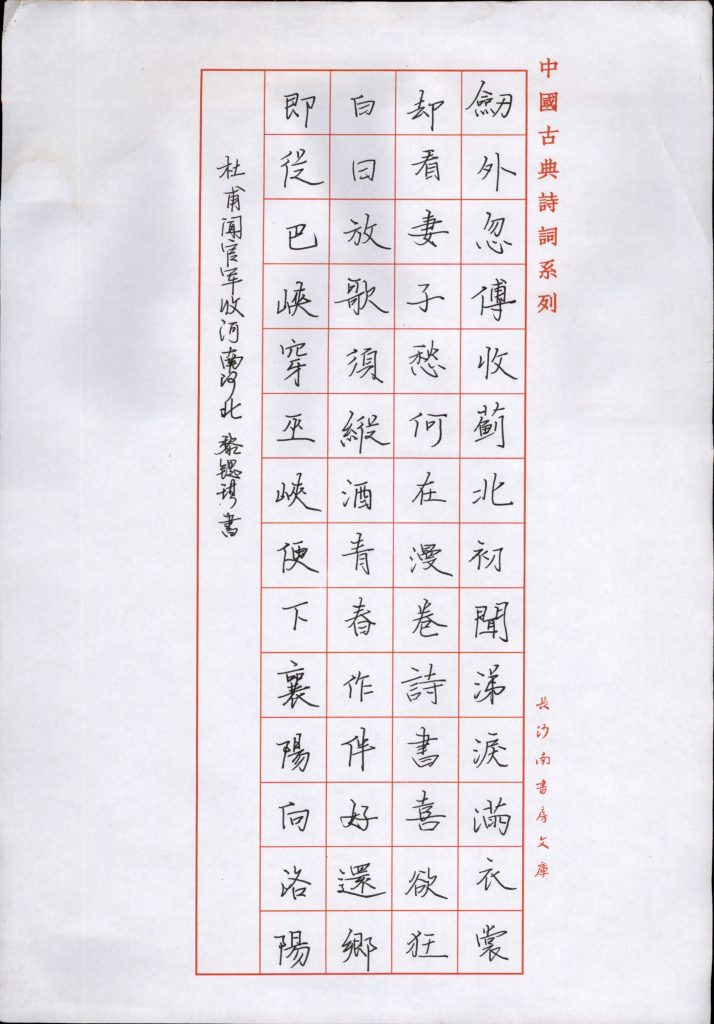 中國古典詩詞系列
長沙南書房文庫
劒外忽傅收薊北初聞涕淚滿衣裳
却看妻子愁何在漫卷詩書喜欲狂
白日放歌須縱酒青春作伴好還鄉
即從巴峽穿巫峽便下襄陽向洛陽
杜甫聞官軍收河南河北 黎鍶琪書